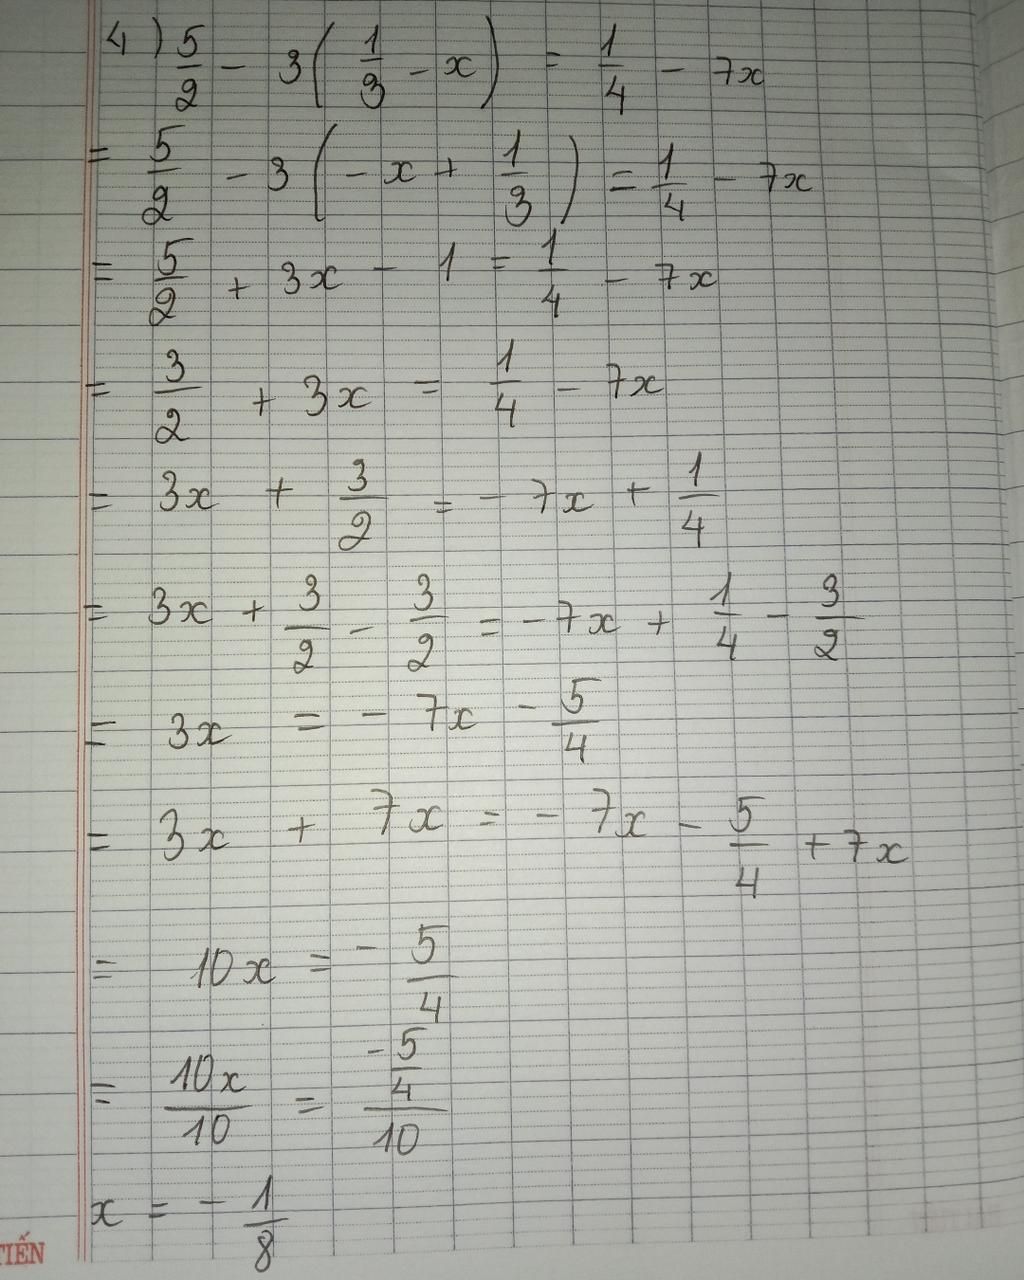 4) 5/2 - 3(1/3 - x) = 1/4 - 7x
= 5/2 - 3(-x + 1/3) = 1/4 - 7x
= 5/2 + 3x - 1 = 1/4 - 7x
= 3/2 + 3x = 1/4 - 7x
= 3x + 3/2 = -7x + 1/4
= 3x + 3/2 - 3/2 = -7x + 1/4 - 3/2
= 3x = -7x - 5/4
= 3x + 7x = -7x - 5/4 + 7x
= 10x = -5/4
= 10x/10 = (-5/4)/10
x = -1/8
TIẾN